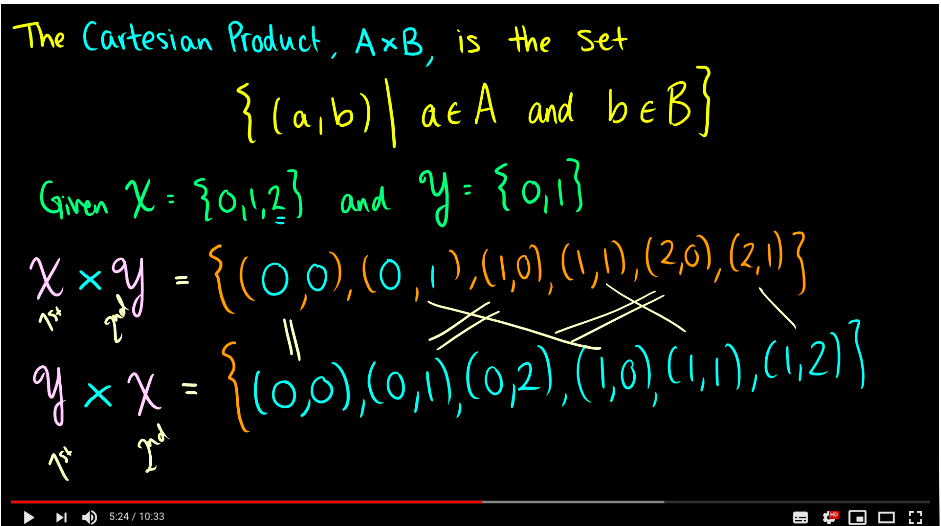 The Cartesian Product, A×B, is the set
{(a,b) | a∈A and b∈B}
Given X = {0,1,2} and Y = {0,1}
X × Y = {(0,0),(0,1),(1,0),(1,1),(2,0),(2,1)}
1st 2nd
Y × X = {(0,0),(0,1),(0,2),(1,0),(1,1),(1,2)}
1st 2nd
5:24 / 10:33
HD